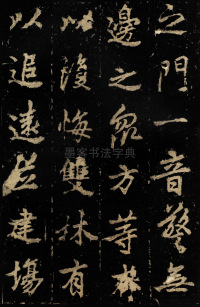 之門一音警无
邊之眾方等
以復悔雙林有
以追遠茲建場
墨客书法字典